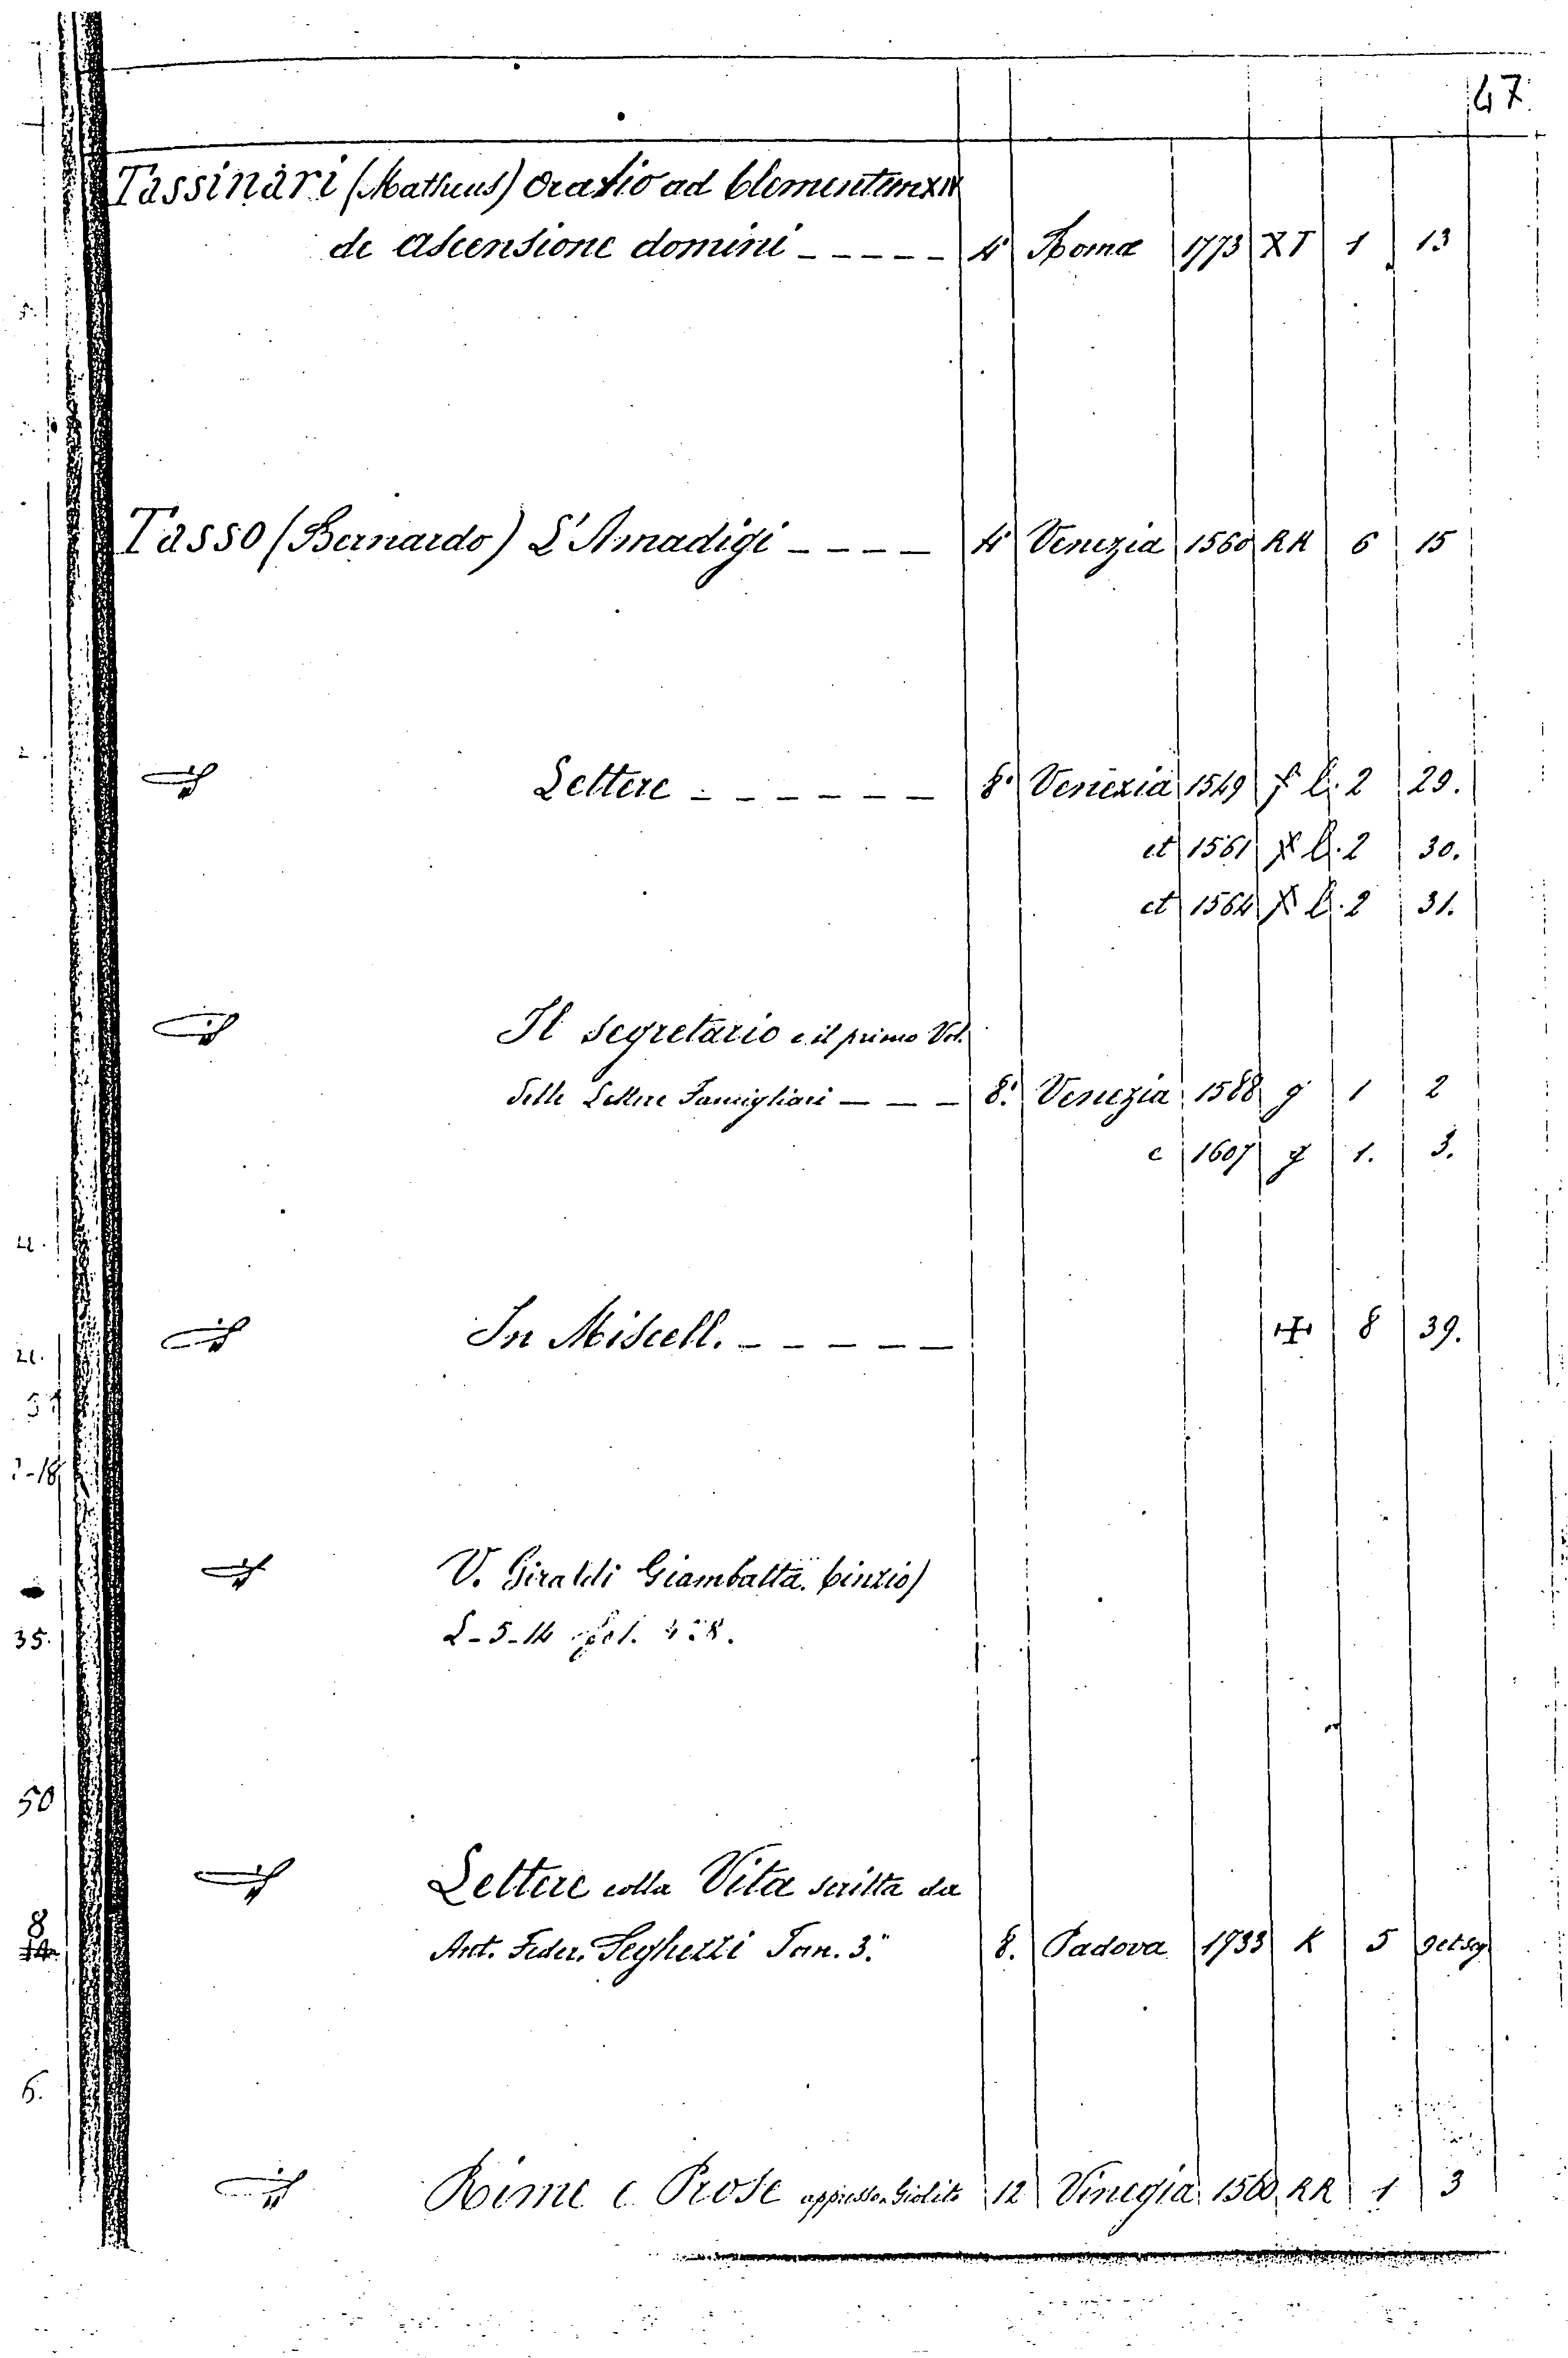 47
Tassinari (Matheus) Oratio ad Clementem XIV
de Ascensione domini ----- 4° Romæ 1773 XT 1 13
Tasso (Bernardo) L'Amadigi ---- 4° Venezia 1560 RR 6 15
Lettere ------ 8° Venezia 1549 l. 2 29.
et 1561 l. 2 30.
et 1564 l. 2 31.
Il Segretario e il primo Vol.
delle Lettere Famigliari --- 8.° Venezia 1588 g 1 2
e 1607 g 1. 3.
In Miscell. ----- 8 39.
V. Giraldi Giambatta. Cinzio)
L-5-14
Lettere colla Vita scritta da
Ant. Feder. Seghezzi Tom. 3." 8. Padova 1733 K 5 9 et seq
Rime e Prose appresso Giolito 12 Vinegia 1560 RR 1 3
35.
50
8
6.